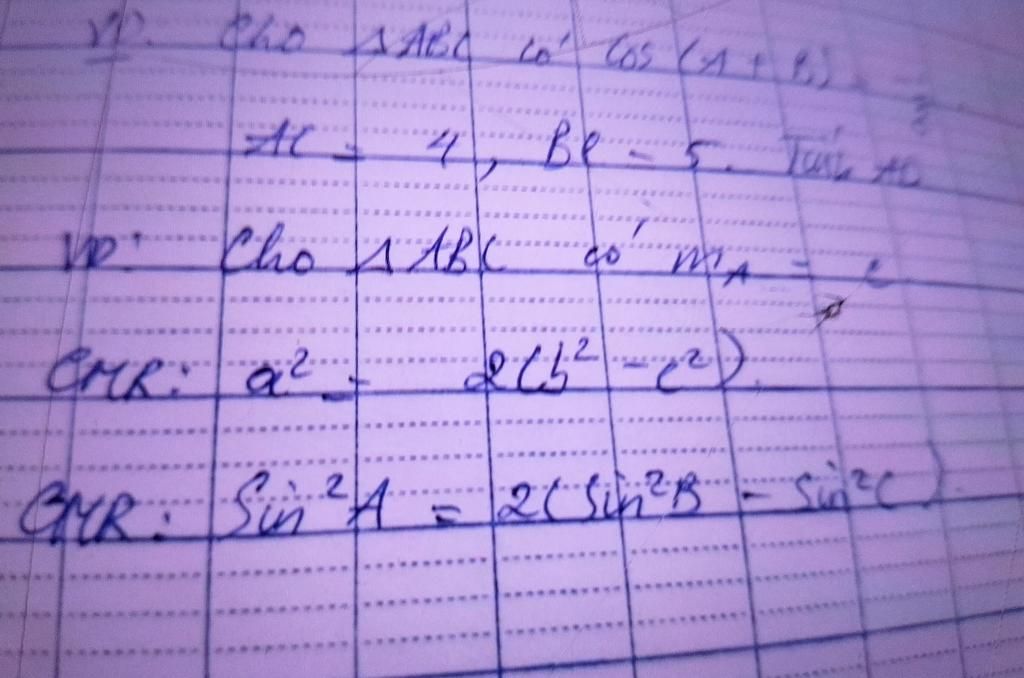 VD: Cho Δ ABC có Cos (A + B)
AC = 4, BC = 5. Tính
VD: Cho Δ ABC có m_A = c
CMR: a² = 2(b² - c²).
CMR: Sin²A = 2(Sin²B - Sin²C).